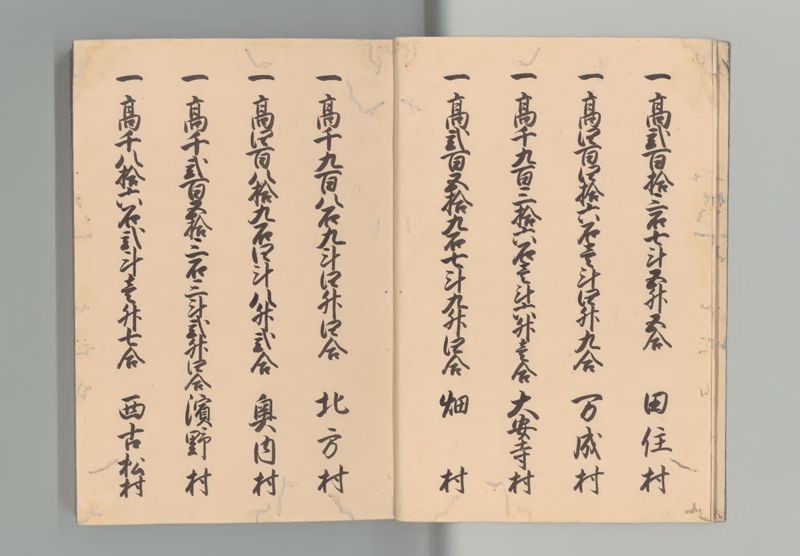 一 高弐百拾三石七斗五升五合 田住村
一 高四百四拾六石壱斗四升九合 万成村
一 高千九百三拾六石壱斗六升壱合 大安寺村
一 高弐百五拾九石七斗九升四合 畑村
一 高千九百八石九斗四升四合 北方村
一 高四百八拾九石四斗八升弐合 奥内村
一 高千弐百五拾三石三斗弐升四合 濱野村
一 高千八拾六石弐斗壱升七合 西古松村